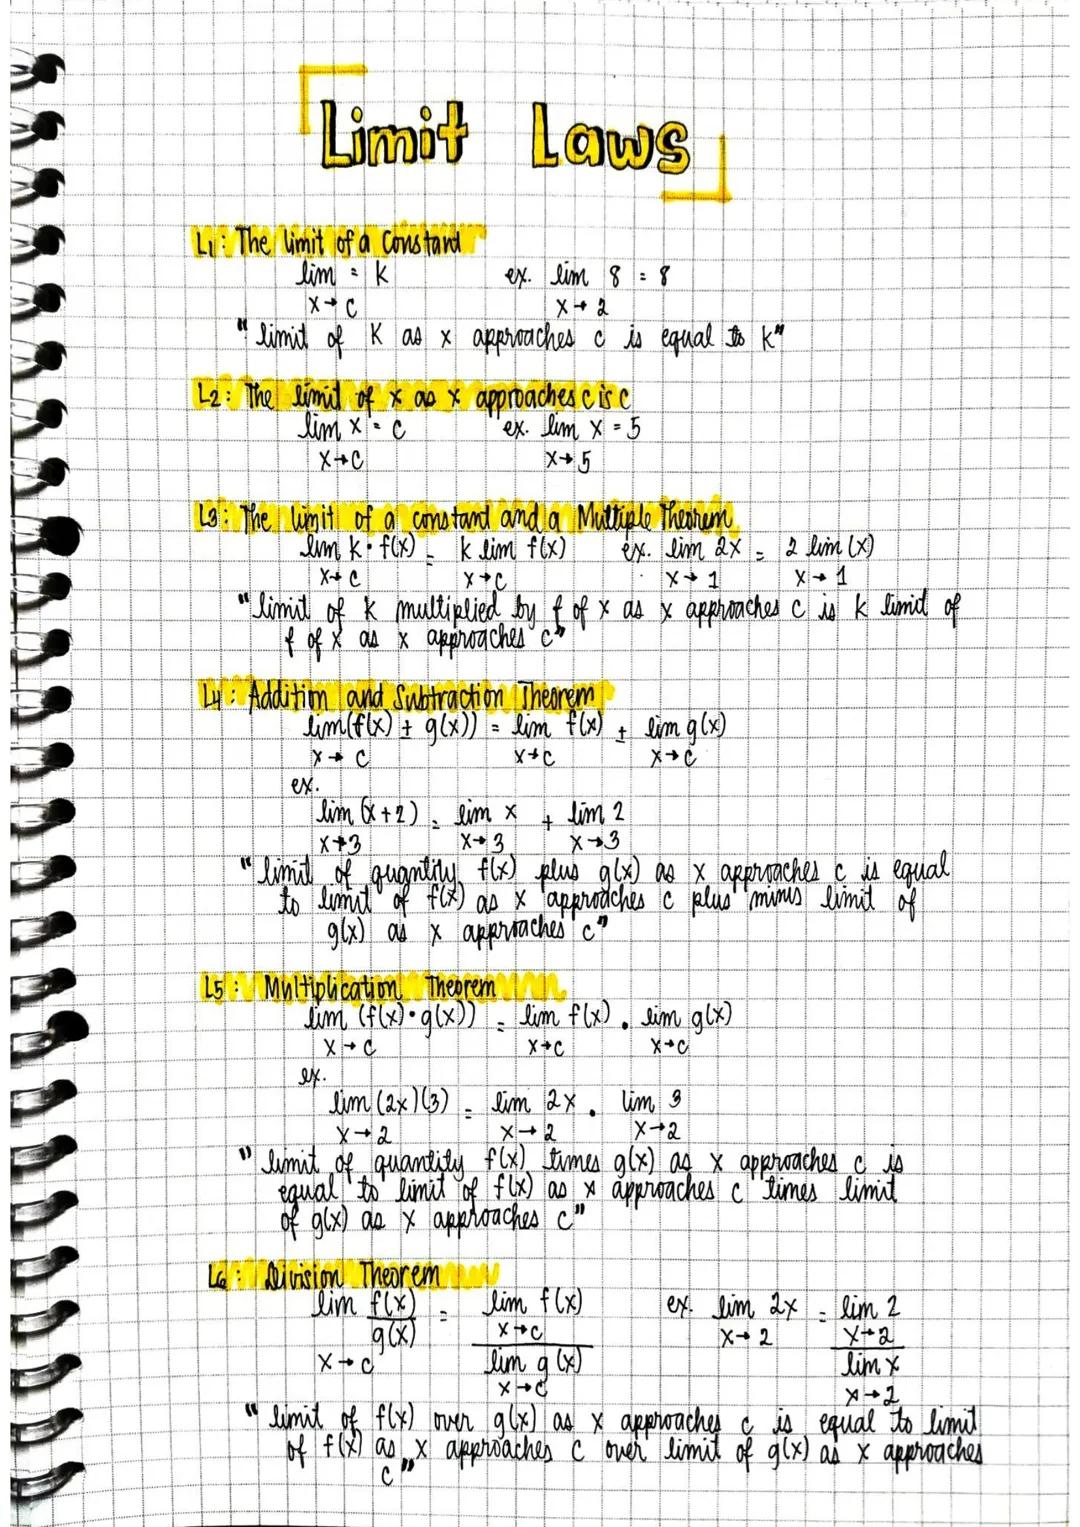 Limit Laws
L1: The limit of a Constant
lim = k ex. lim 8 = 8
x→c x→2
"limit of K as x approaches c is equal to k"
L2: The limit of x as x approaches c is c
lim x = c ex. lim x = 5
x→c x→5
L3: The limit of a constant and a Multiple Theorem
lim k • f(x) = k lim f(x) ex. lim 2x = 2 lim (x)
x→c x→c x→1 x→1
"limit of k multiplied by f of x as x approaches c is k limit of
f of x as x approaches c"
L4: Addition and Subtraction Theorem
lim(f(x) ± g(x)) = lim f(x) ± lim g(x)
x→c x→c x→c
ex.
lim (x+2) = lim x + lim 2
x→3 x→3 x→3
"limit of quantity f(x) plus g(x) as x approaches c is equal
to limit of f(x) as x approaches c plus minus limit of
g(x) as x approaches c"
L5: Multiplication Theorem
lim (f(x)•g(x)) = lim f(x) • lim g(x)
x→c x→c x→c
ex.
lim (2x)(3) = lim 2x • lim 3
x→2 x→2 x→2
"limit of quantity f(x) times g(x) as x approaches c is
equal to limit of f(x) as x approaches c times limit
of g(x) as x approaches c"
L6: Division Theorem
lim f(x) = lim f(x) ex. lim 2x = lim 2
g(x) x→c x→2 x→2
x→c lim g(x) lim x
x→c x→2
"limit of f(x) over g(x) as x approaches c is equal to limit
of f(x) as x approaches c over limit of g(x) as x approaches
c"